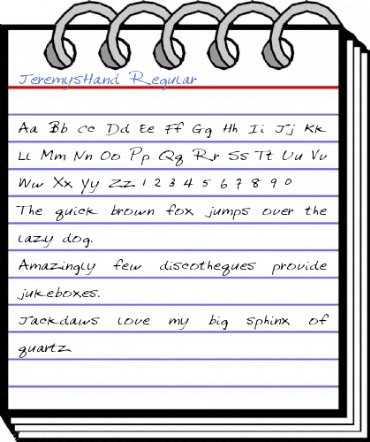 JeremysHand Regular
Aa Bb Cc Dd Ee Ff Gg Hh Ii Jj Kk
Ll Mm Nn Oo Pp Qq Rr Ss Tt Uu Vv
Ww Xx Yy Zz 1 2 3 4 5 6 7 8 9 0
The quick brown fox jumps over the
lazy dog.
Amazingly few discotheques provide
jukeboxes.
Jackdaws love my big sphinx of
quartz